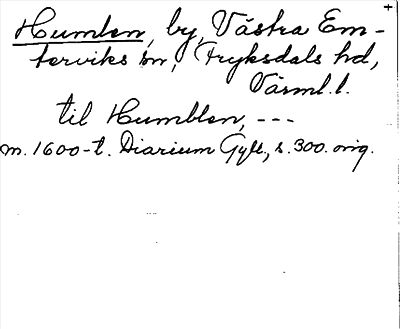 Humlen, by, Västra Em-
terviks sn, Fryksdals hd,
Värml. l.
til Humblen, ---
m. 1600-t. Diarium Gyll., s. 300. orig.